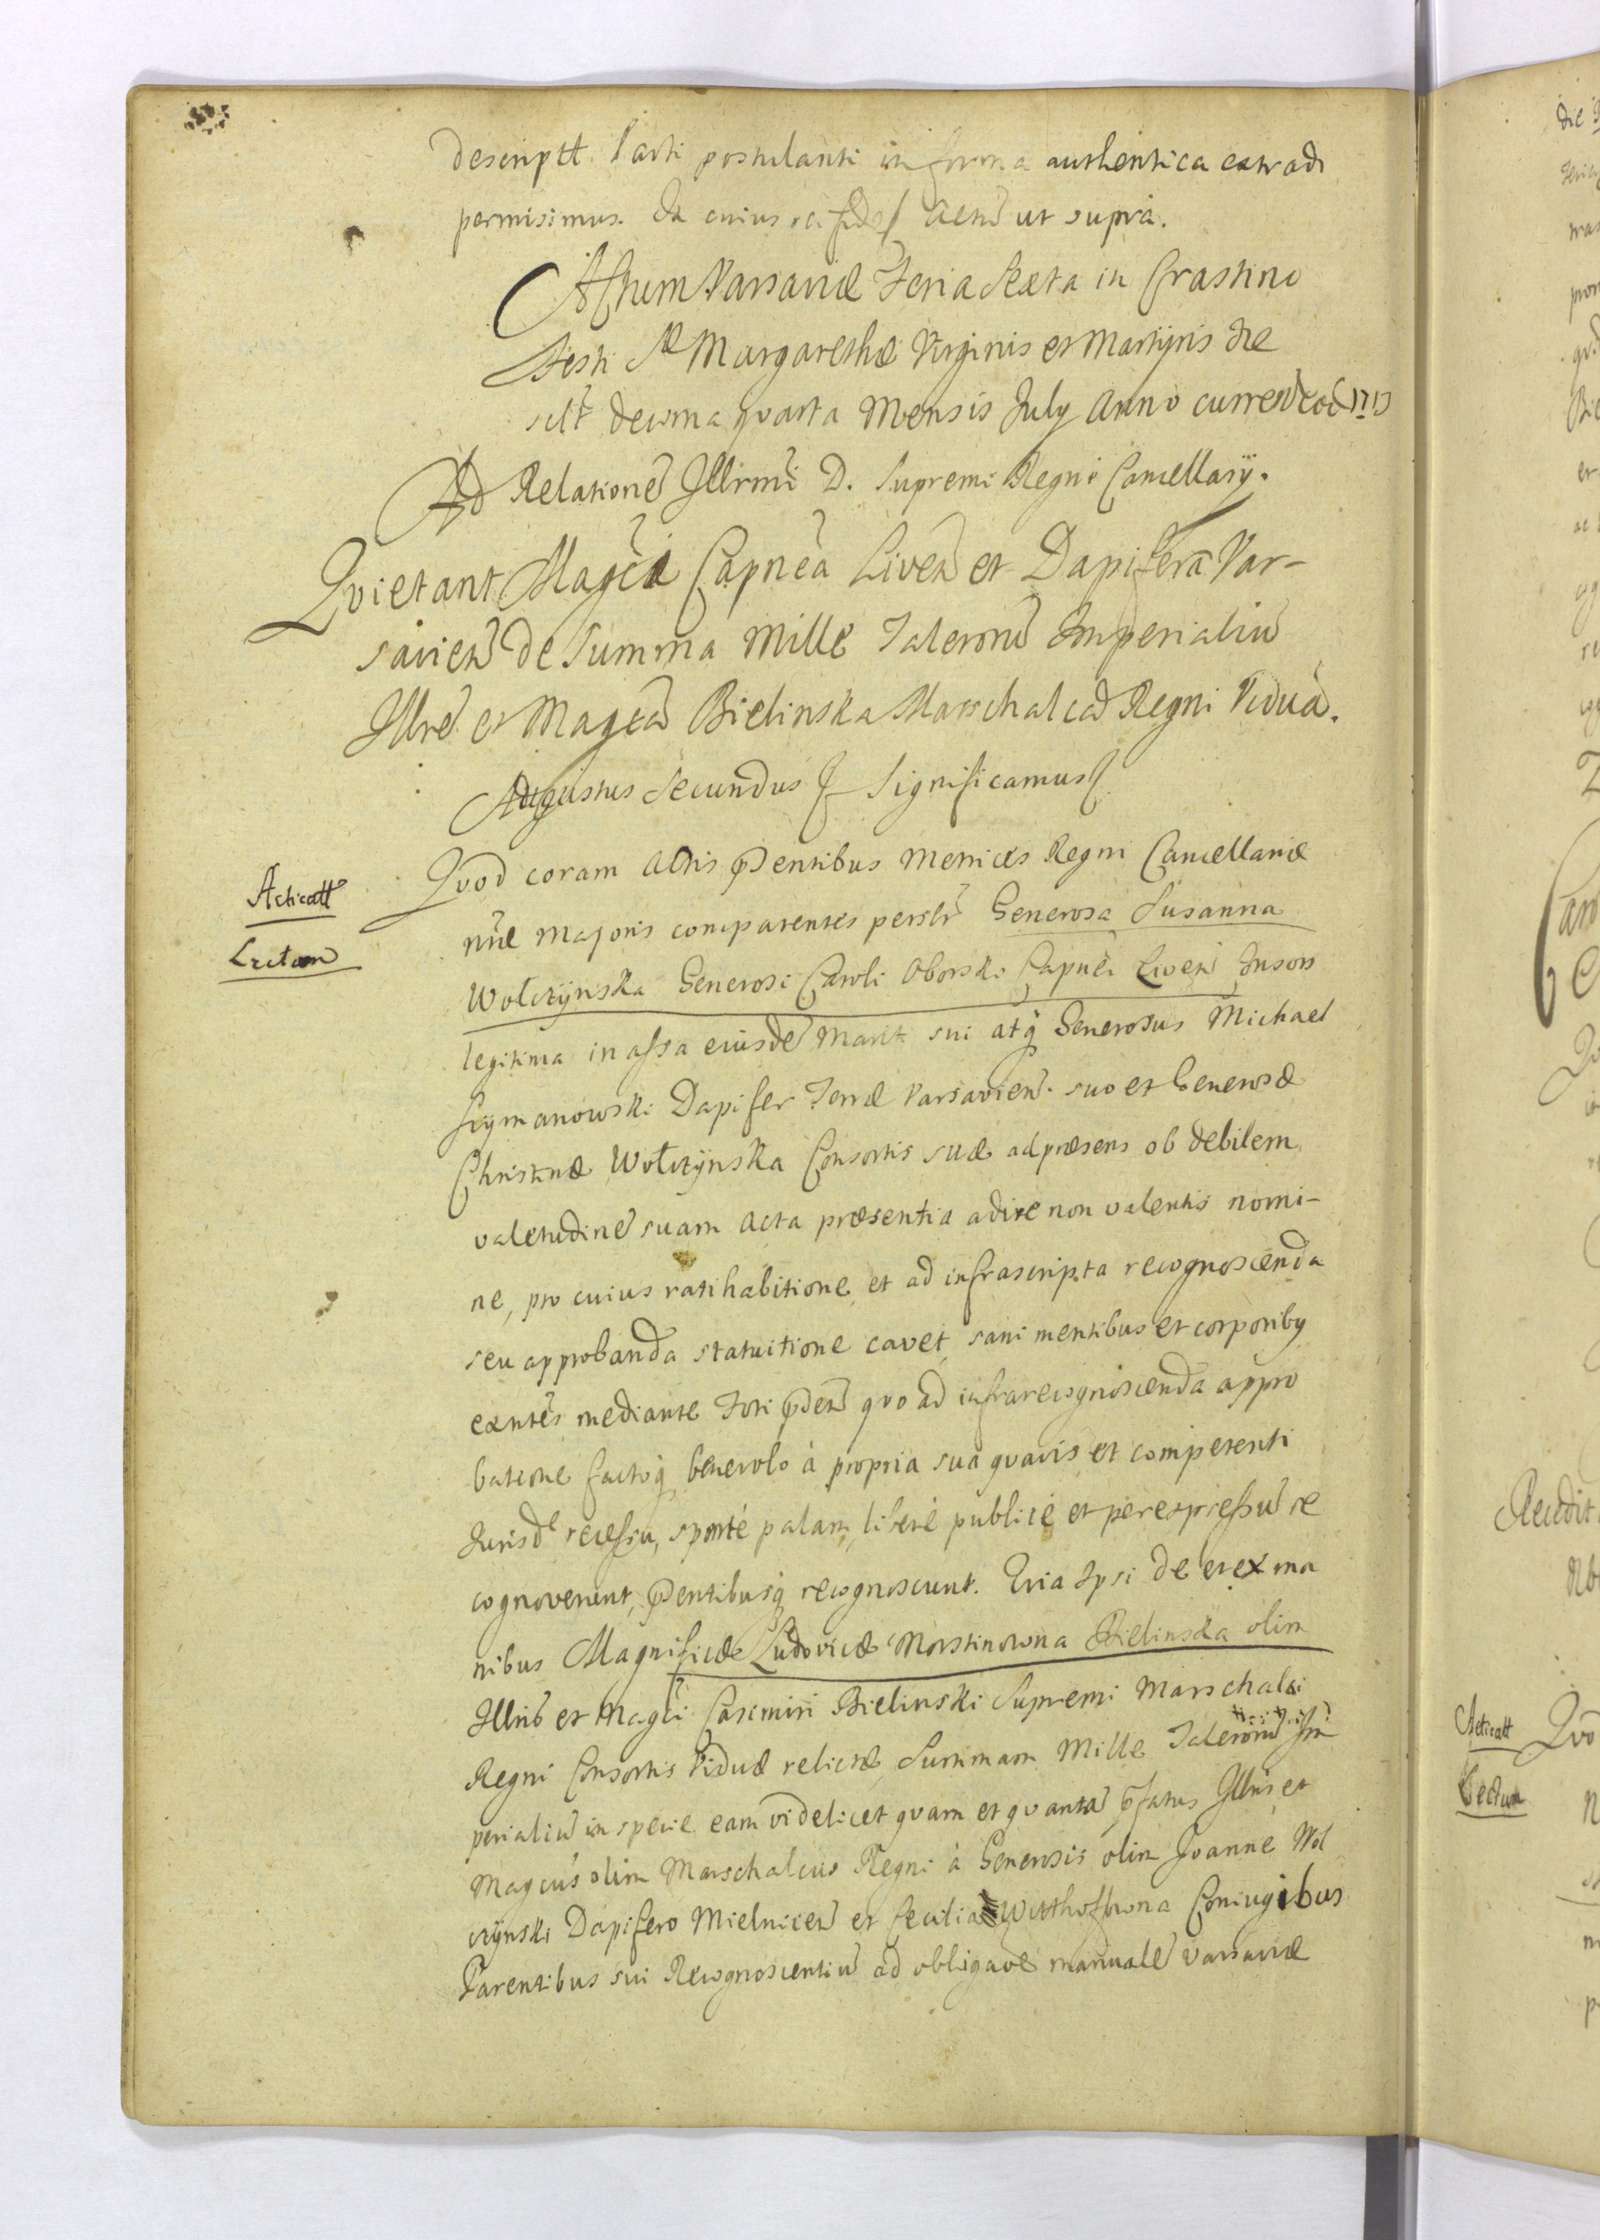 descriptt Parti postulanti in forma authentica extradi
permisimus. In cuius rei fidē Actū ut supra.
Actum Varsaviæ Feria Sexta in Crastino
Festi Sæ Margarethæ Virginis et Martyris die
sclt decima quarta Mensis July Anno currē eod 1713
Ad Relationē Illrmi D. Supremi Regni Cancellarÿ.
Qvietant Magcā Capnēā Liveñ et Dapiferā Var-
savieñ de Summa Mille Talerorū Imperialiū
Illrē et Magcā Bielinska Marschalcā Regni Viduā.
Augustus Secundus Significamus
Acticatt
Lectum
Qvod coram Actis pñtibus Metrices Regni Cancellariæ
nræ Majoris comparentes persltr Generosa Susanna
Wołczÿnska Generosi Caroli Oborski Capnei Liveñ Consors
legitima in assa eiusdē Mariti sui atq̃ Generosus Michael
Szymanowski Dapifer Terræ Varsavieñ. suo et Generosæ
Christinæ Wołczÿnska Consortis suæ ad præsens ob debilem
valetudinē suam Acta præsentia adire non valentis nomi-
ne, pro cuius ratihabitione et ad infrascripta recognoscenda
seu approbanda statuitione cavet, sani mentibus et corporibq
exntēs mediante Fori pñdeñ qvo ad infrarecognoscenda appro
batione factoq̃ benevolo à propria sua qvavis et competenti
Jurisdē recessu, sponte palam, liberè publicè et per expressū re
cognoverunt, pñtibusq̃ recognoscunt. Qvia Ipsi de et ex ma
nibus Magnificæ Ludovicæ Morstinowna Bielinska olim
Illris et Magci Casimiri Bielinski Supremi Marschalci
Regni Consortis Viduæ relictæ, Summam Mille Talerorū Im
perialiū in specie eam videlicet qvam et qvantā pfatus Illris et
Magcus olim Marschalcus Regni à Generosis olim Joanne Woł
czÿnski Dapifero Mielniceñ et Cecilia Witthoffowna Coniugibus
Parentibus sui Recognoscentiū ad obligaōē manualē Varsaviæ
Acticatt
Lectum